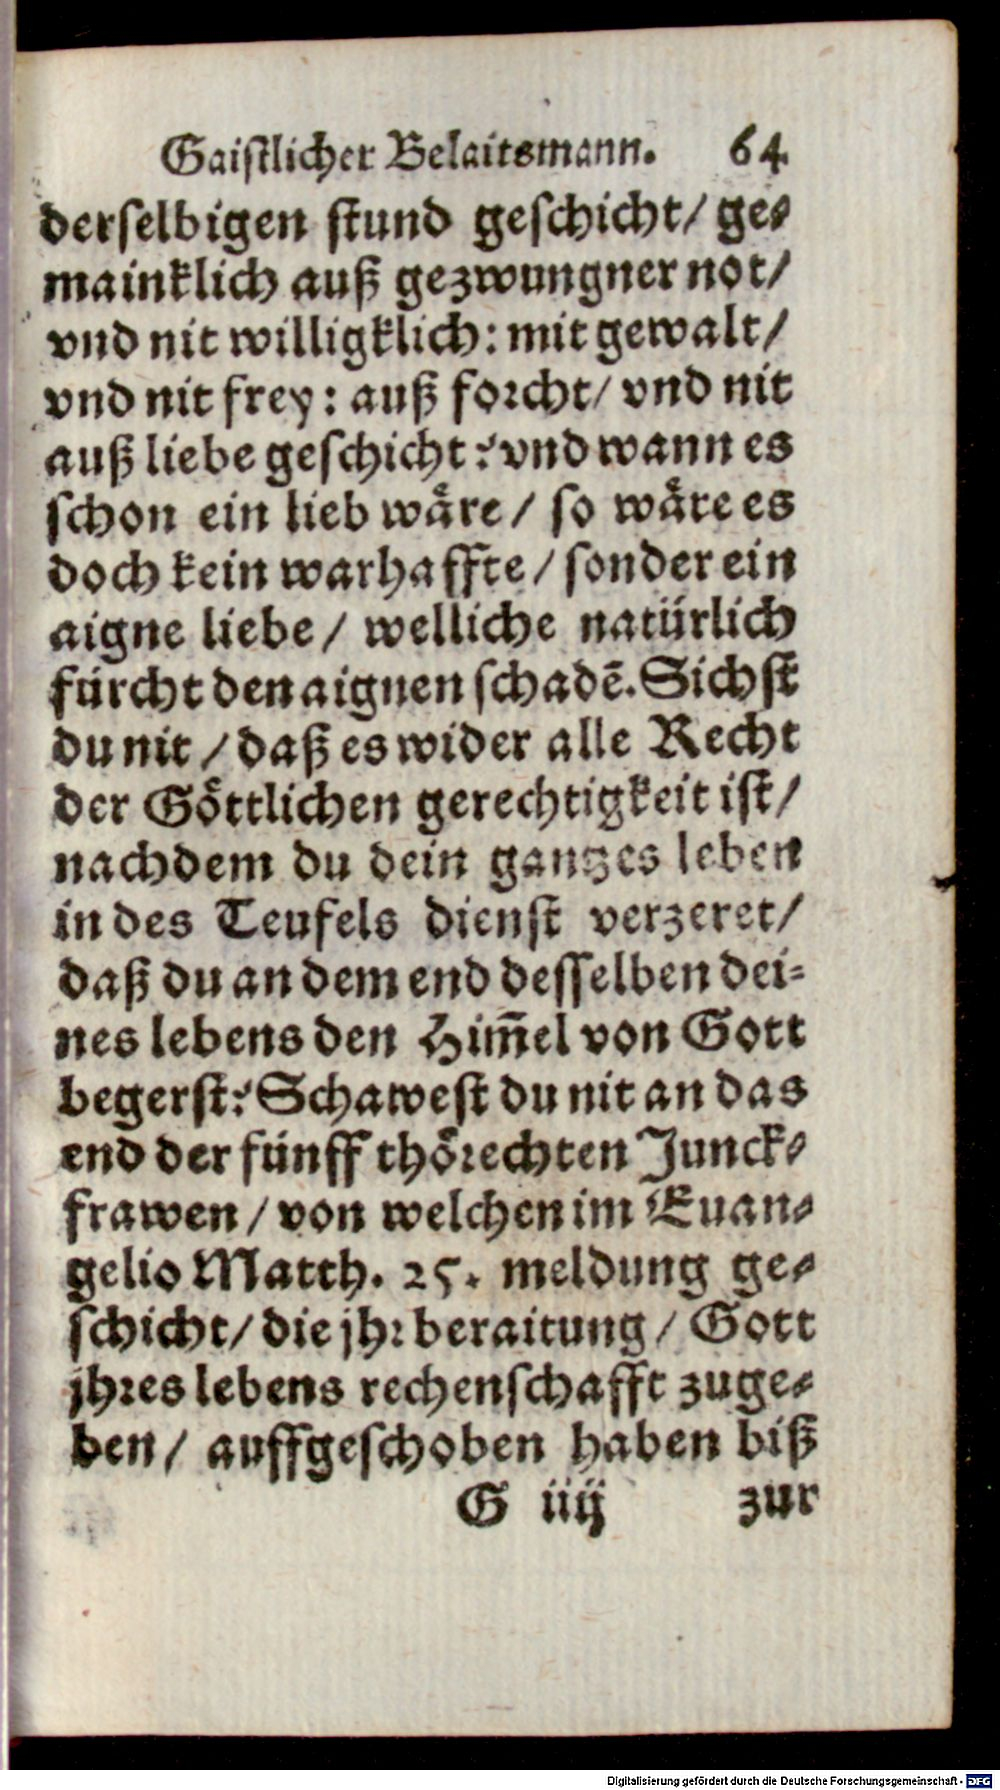 Gaistlicher Belaitsmann. 64.
derselbigen stund geschicht/ ge-
mainklich auß gezwungner not/
vnd nit willigklich: mit gewalt/
vnd nit frey: auß forcht/ vnd nit
auß liebe geschicht? vnd wann es
schon ein lieb wåre/ so wåre es
doch kein warhaffte/ sonder ein
aigne liebe/ welliche natürlich
fürcht den aignen schadē. Sichst
du nit/ daß es wider alle Recht
der Göttlichen gerechtigkeit ist/
nachdem du dein gantzes leben
in des Teufels dienst verzeret/
daß du an dem end desselben dei-
nes lebens den Him̄el von Gott
begerst? Schawest du nit an das
end der fünff thörechten Junck-
frawen/ von welchen im Euan-
gelio Matth. 25. meldung ge-
schicht/ die jhr beraitung/ Gott
jhres lebens rechenschafft zuge-
ben/ auffgeschoben haben biß
G iiij zur
Digitalisierung gefördert durch die Deutsche Forschungsgemeinschaft - DFG